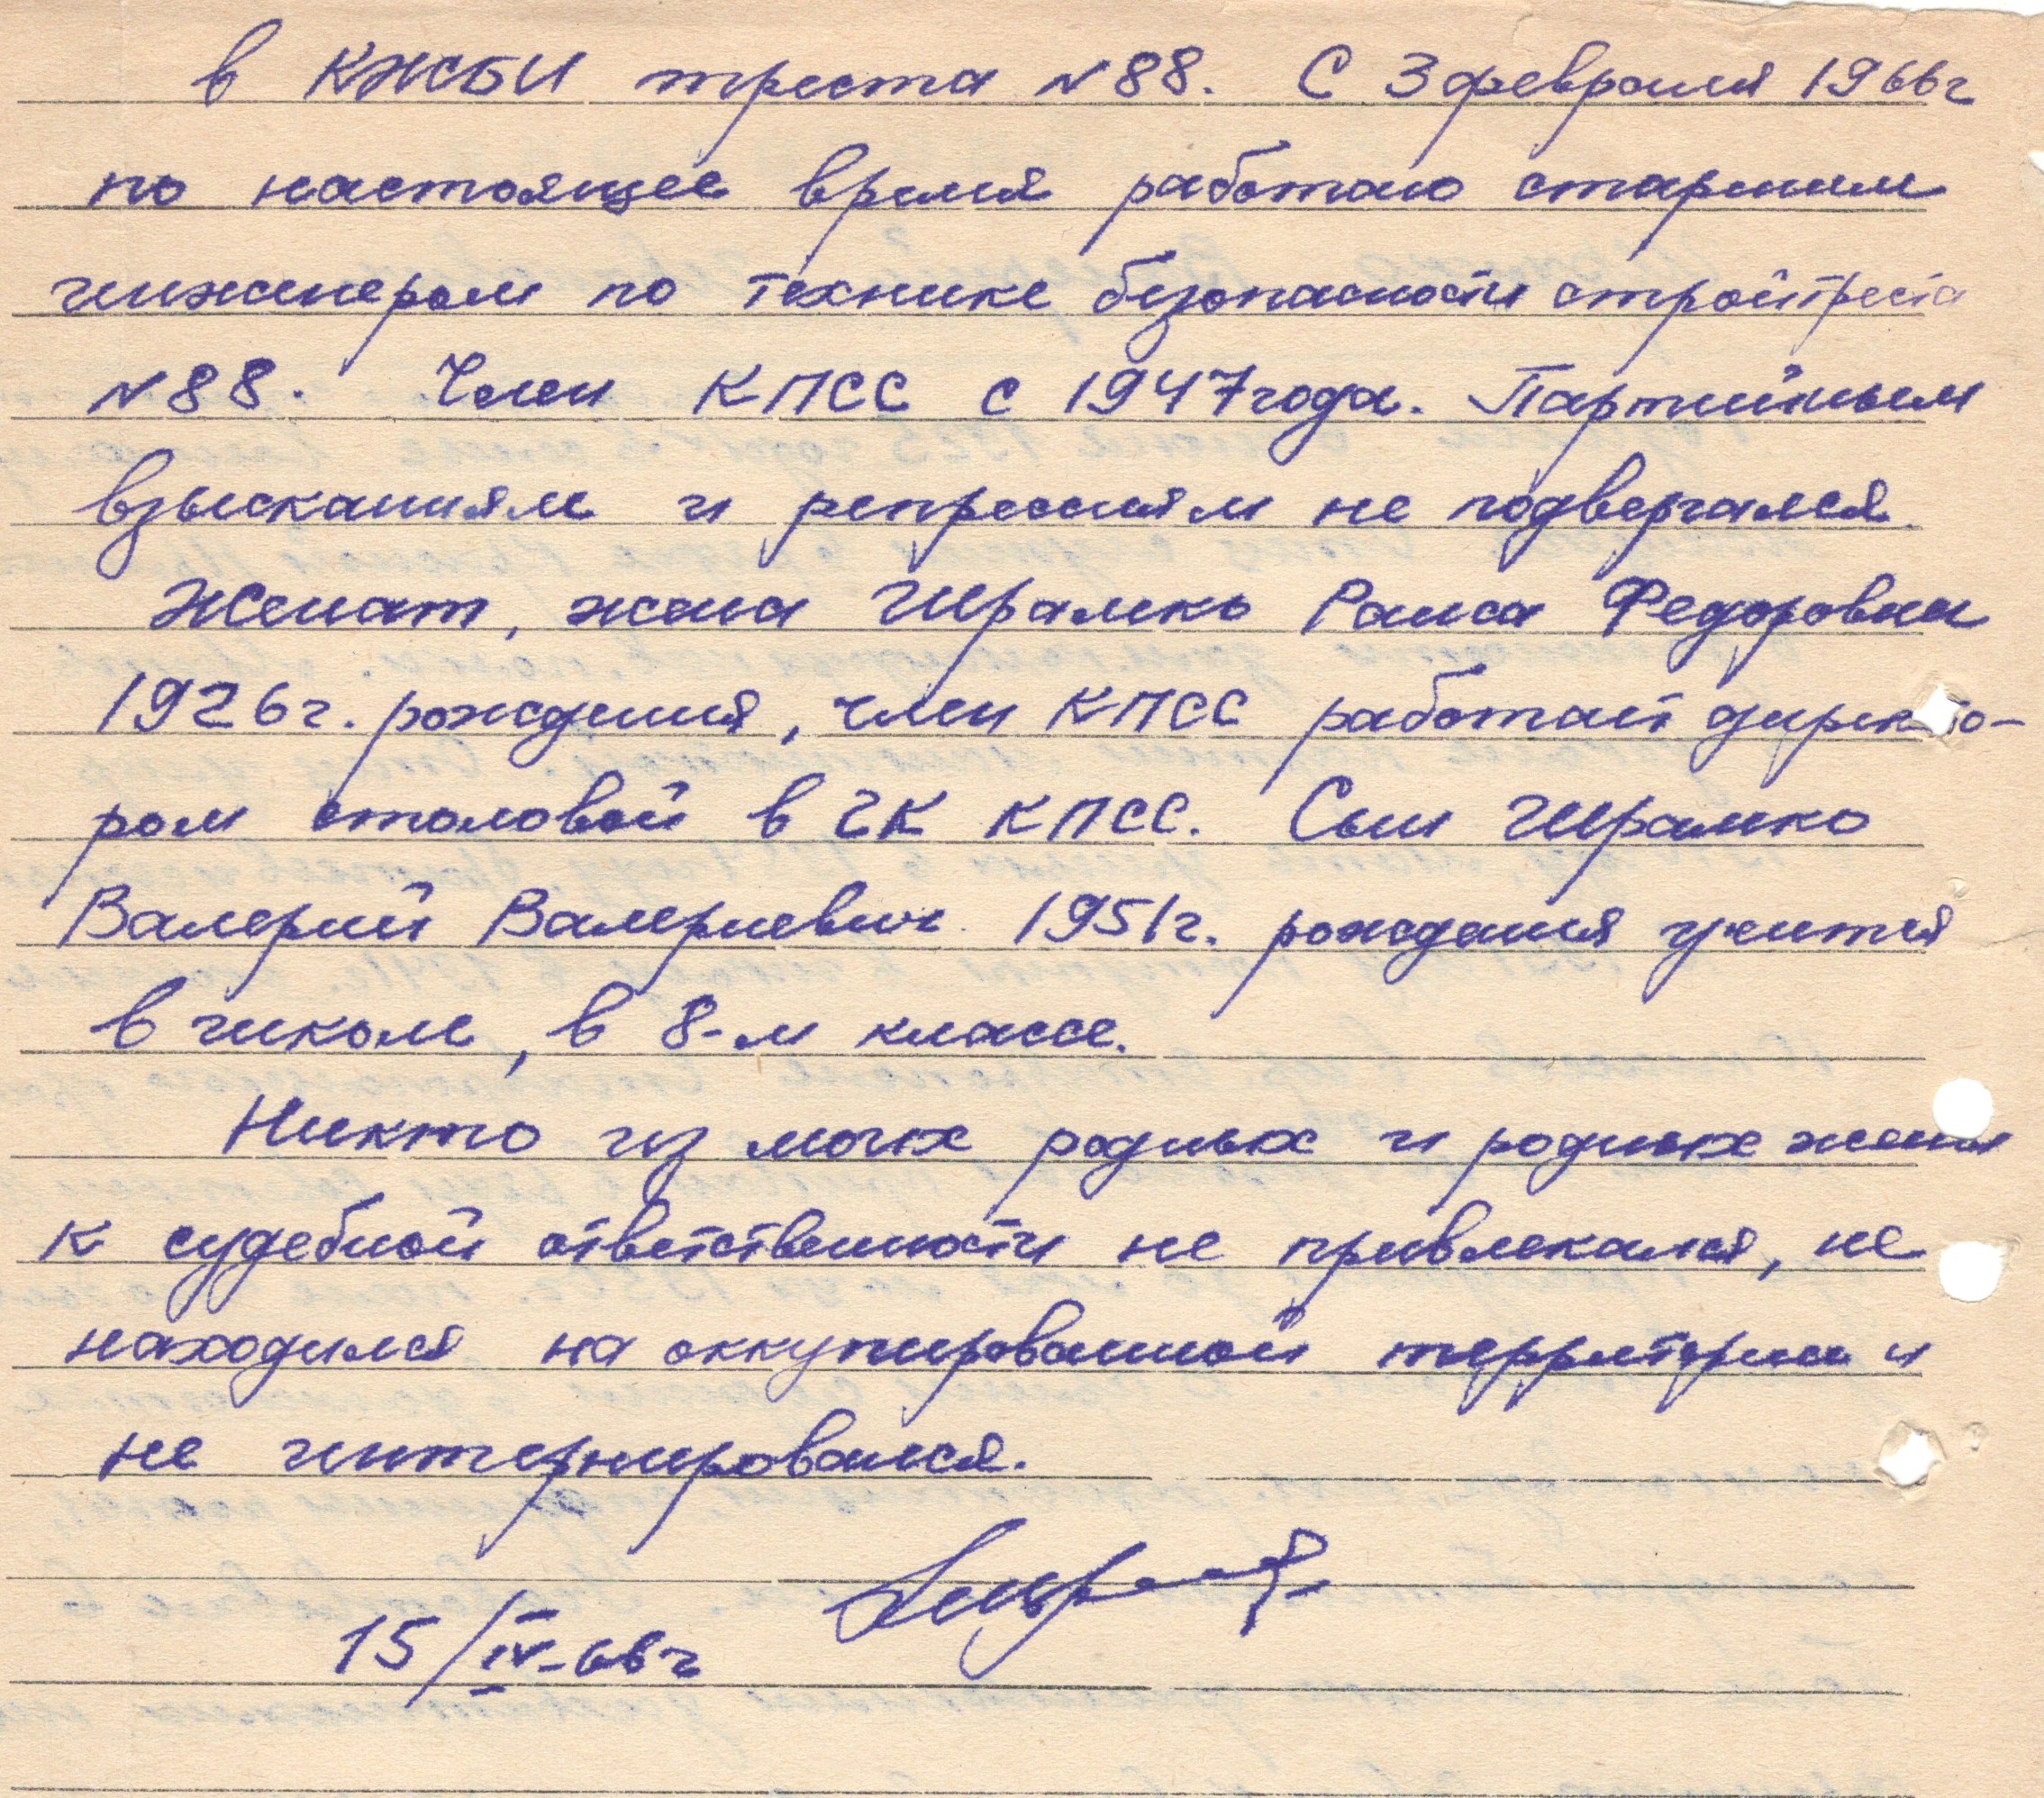 в КЖБИ треста №88. С 3 февраля 1966г
по настоящее время работаю старшим
инженером по технике безопасности стройтреста
№88. Член КПСС с 1947 года. Партийным
взысканиям и репрессиям не подвергался.
Женат, жена Шрамко Раиса Федоровна
1926г. рождения, член КПСС работает директо-
ром столовой в ЦК КПСС. Сын Шрамко
Валерий Валериевич 1951г. рождения учится
в школе, в 8-м классе.
Никто из моих родных и родных жены
к судебной ответственности не привлекался, не
находился на оккупированной территории и
не интернировался.
15/IV-66г